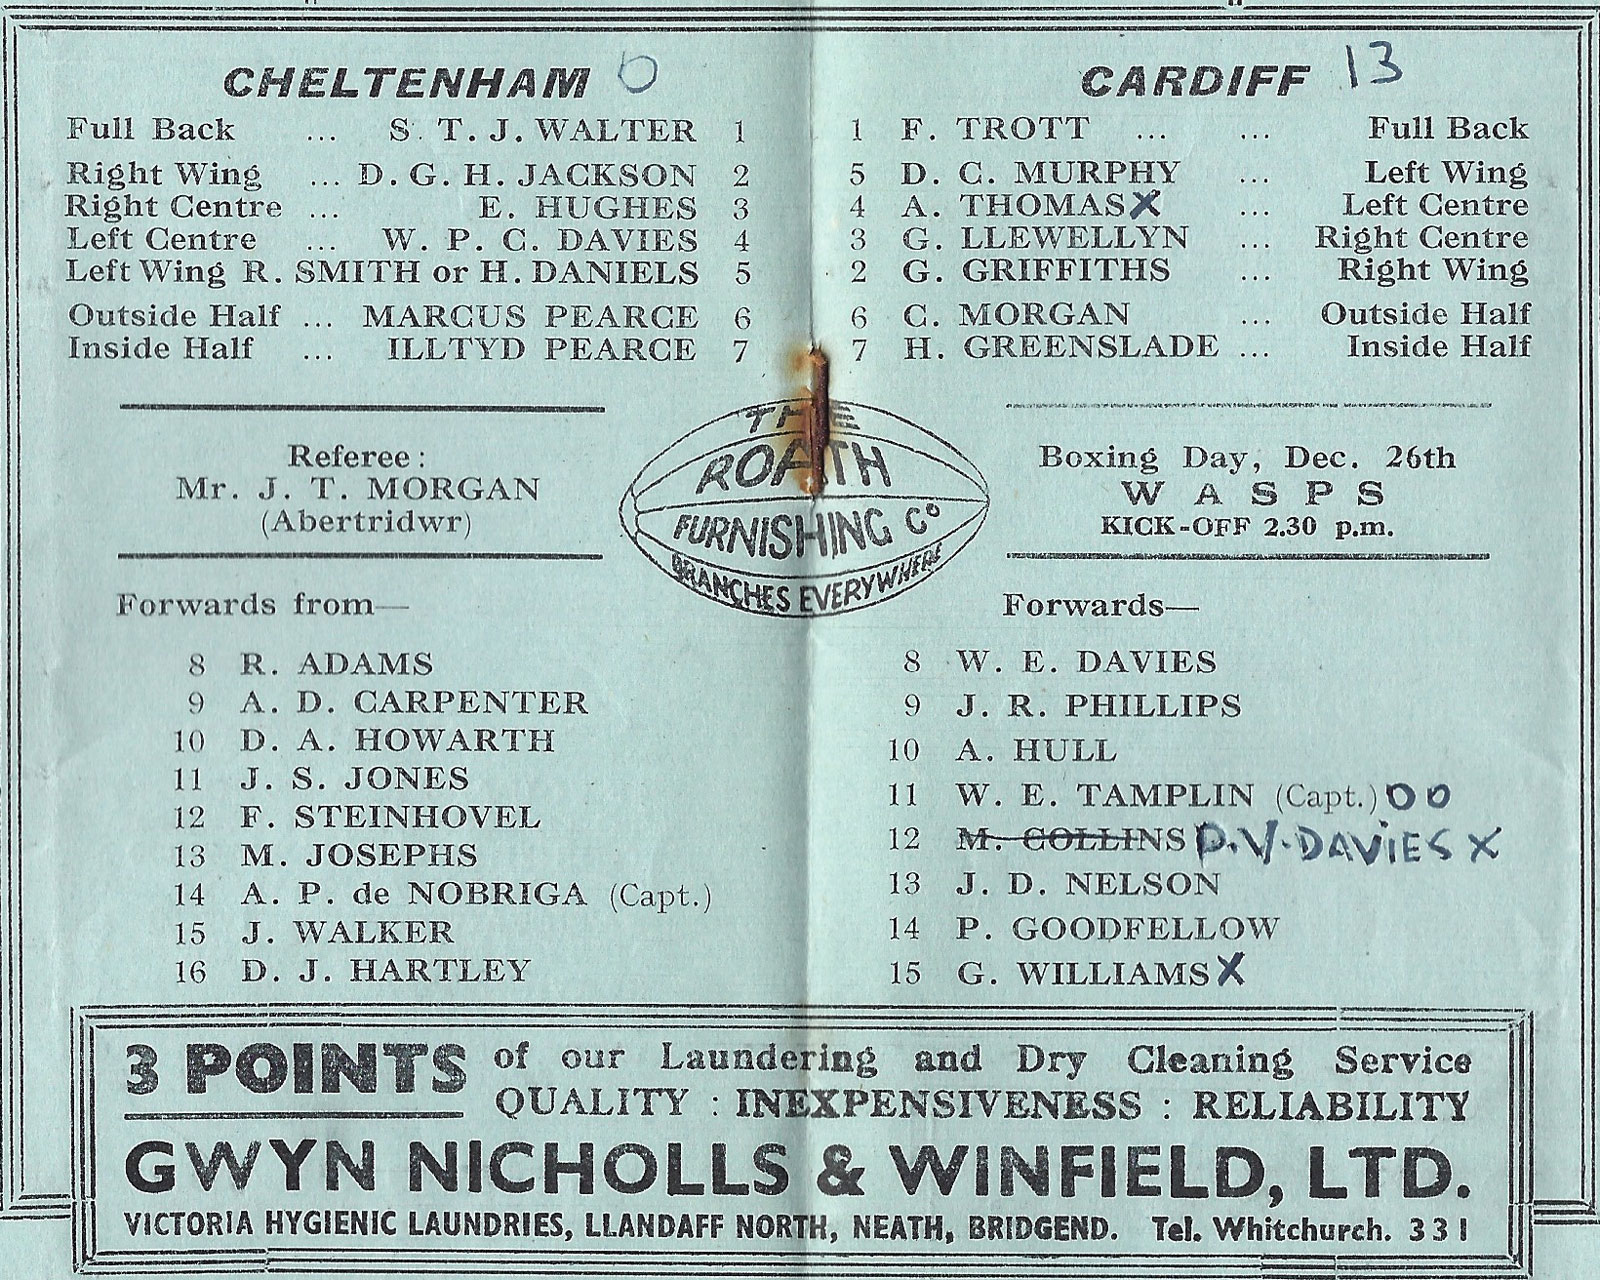 CHELTENHAM 0
Full Back ... S. T. J. WALTER 1
Right Wing ... D. G. H. JACKSON 2
Right Centre ... E. HUGHES 3
Left Centre ... W. P. C. DAVIES 4
Left Wing R. SMITH or H. DANIELS 5
Outside Half ... MARCUS PEARCE 6
Inside Half ... ILLTYD PEARCE 7
Referee :
Mr. J. T. MORGAN
(Abertridwr)
Forwards from—
8 R. ADAMS
9 A. D. CARPENTER
10 D. A. HOWARTH
11 J. S. JONES
12 F. STEINHOVEL
13 M. JOSEPHS
14 A. P. de NOBRIGA (Capt.)
15 J. WALKER
16 D. J. HARTLEY
THE
ROATH
FURNISHING Co
BRANCHES EVERYWHERE
CARDIFF 13
1 F. TROTT ... ... Full Back
5 D. C. MURPHY ... Left Wing
4 A. THOMAS X ... Left Centre
3 G. LLEWELLYN ... Right Centre
2 G. GRIFFITHS ... Right Wing
6 C. MORGAN ... Outside Half
7 H. GREENSLADE ... Inside Half
Boxing Day, Dec. 26th
WASPS
KICK-OFF 2.30 p.m.
Forwards—
8 W. E. DAVIES
9 J. R. PHILLIPS
10 A. HULL
11 W. E. TAMPLIN (Capt.) O O
12 M. COLLINS D.V. DAVIES X
13 J. D. NELSON
14 P. GOODFELLOW
15 G. WILLIAMS X
3 POINTS of our Laundering and Dry Cleaning Service
QUALITY : INEXPENSIVENESS : RELIABILITY
GWYN NICHOLLS & WINFIELD, LTD.
VICTORIA HYGIENIC LAUNDRIES, LLANDAFF NORTH, NEATH, BRIDGEND. Tel. Whitchurch. 331